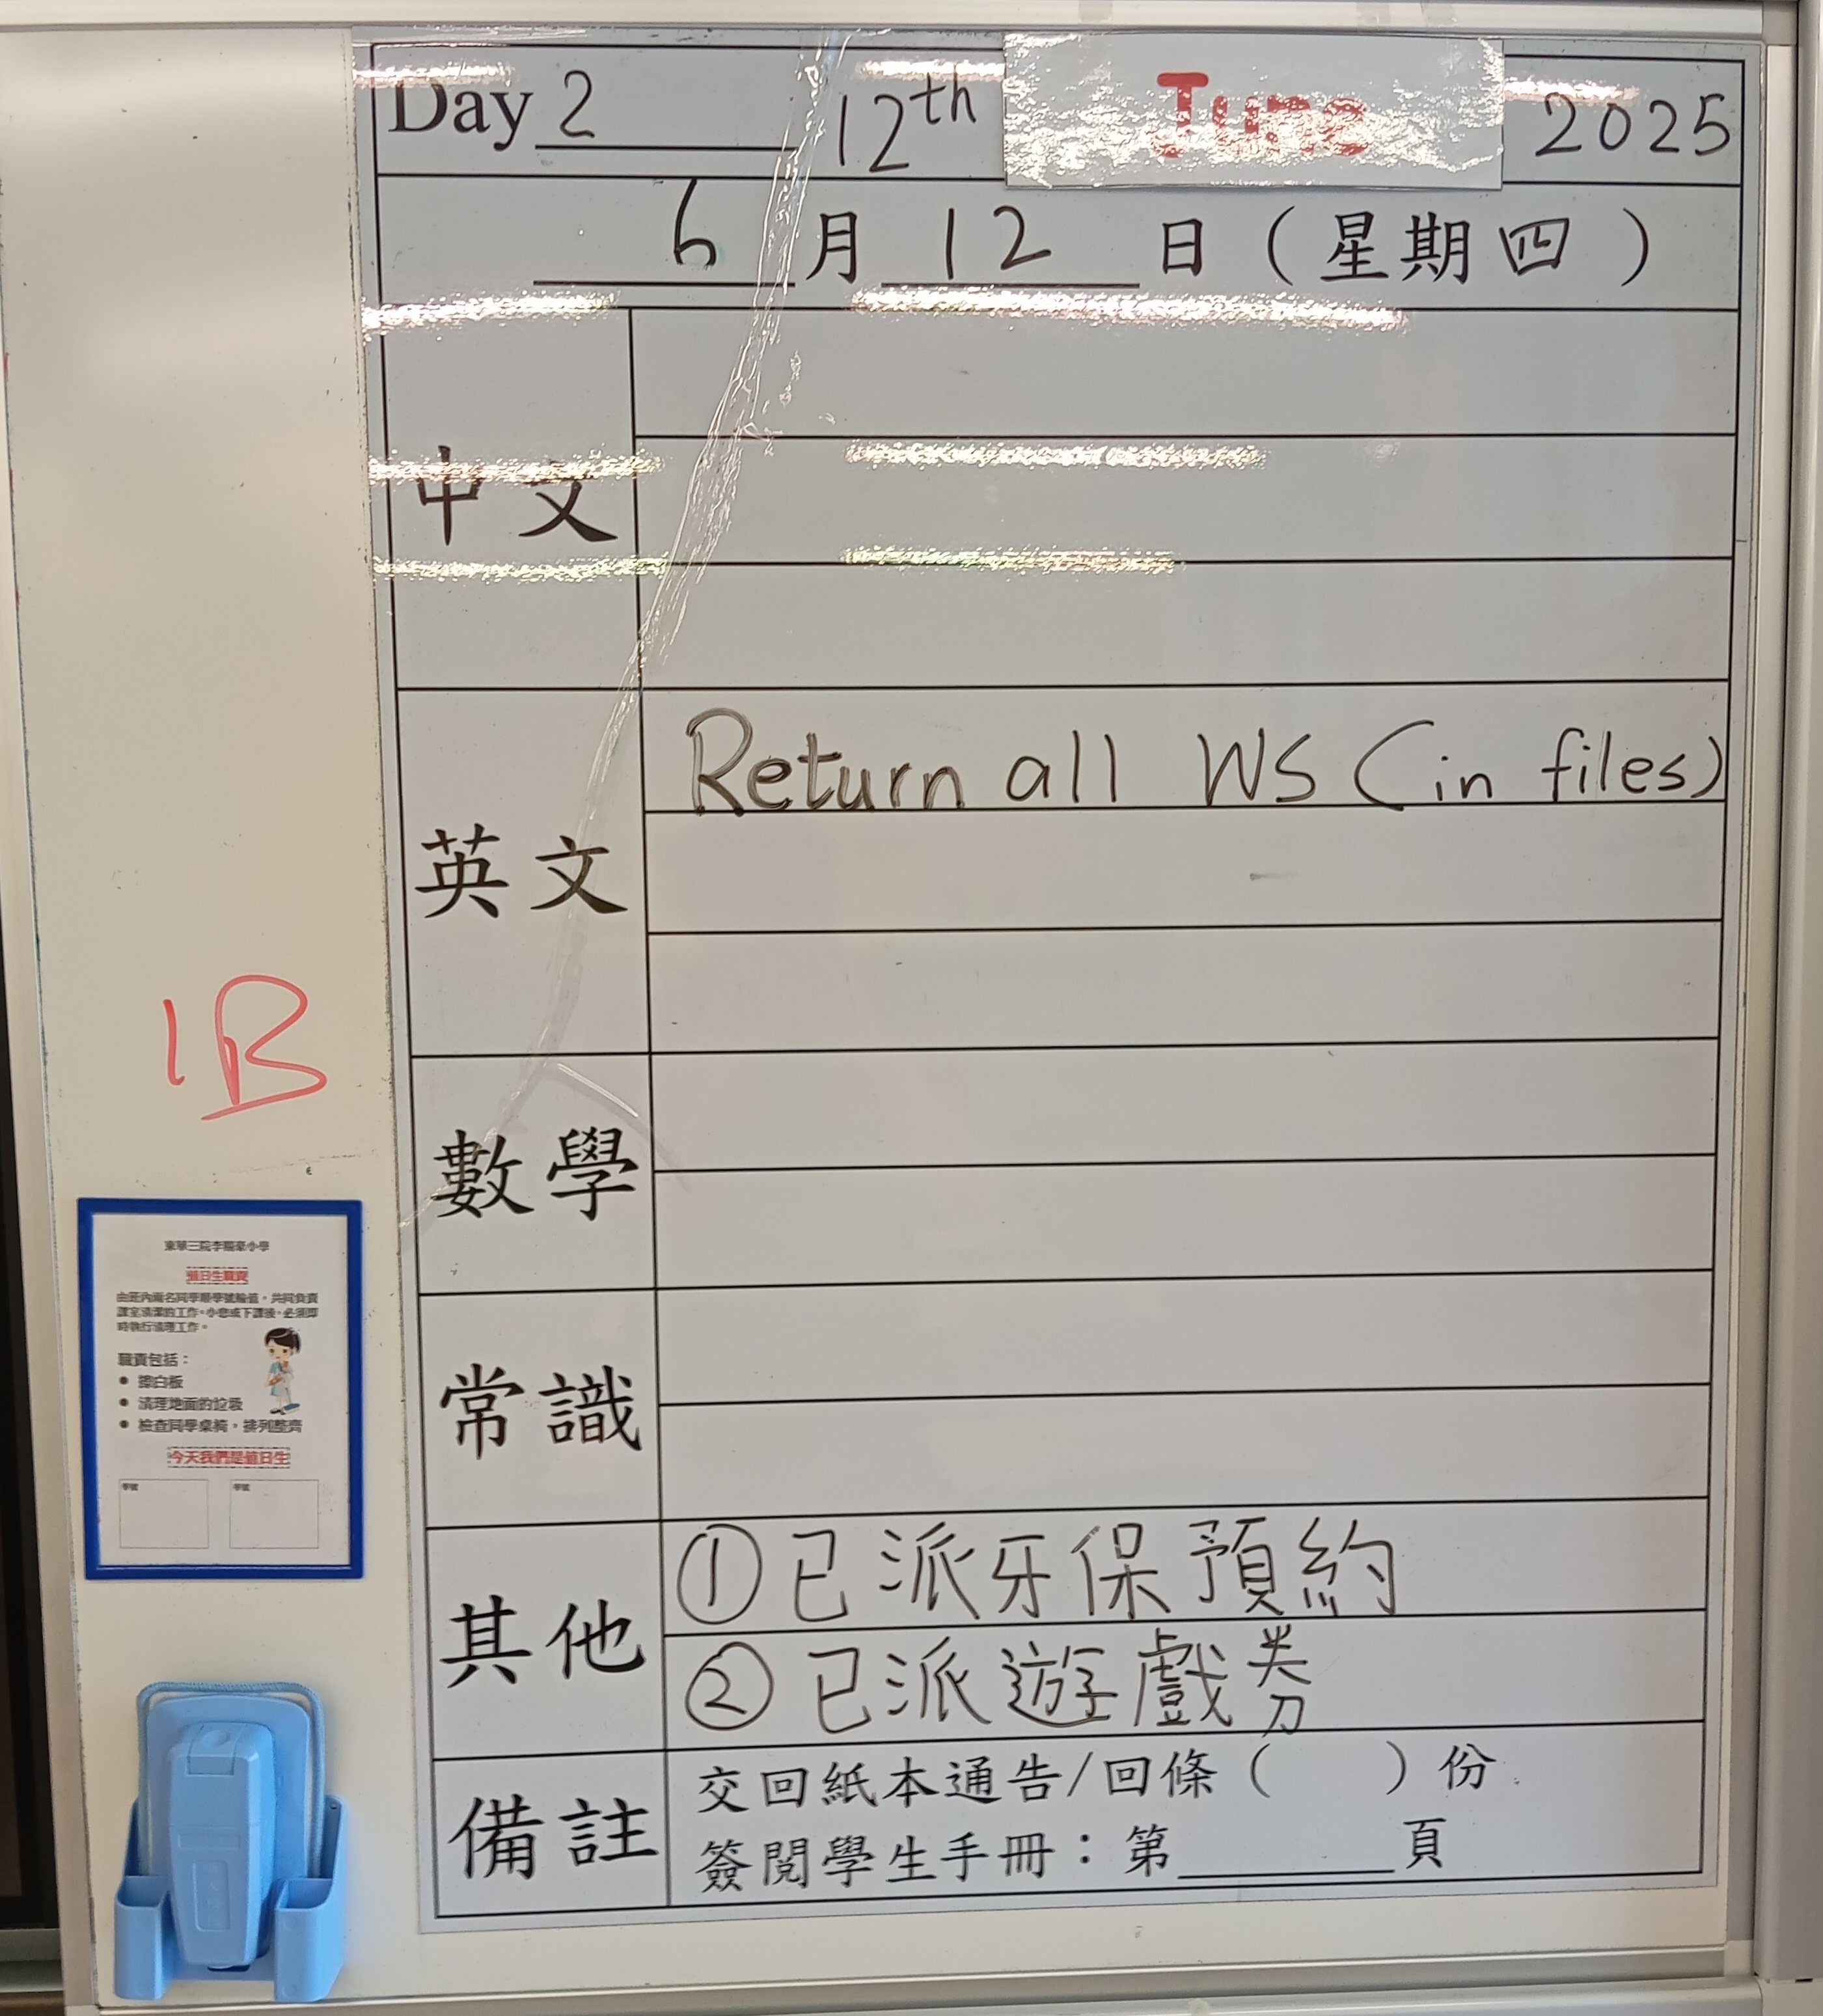 Day 2 12th June 2025
6月12日（星期四）
中文
Return all WS (in files)
英文
數學
常識
①已派牙保預約
其他
②已派遊戲券
交回紙本通告/回條（　　）份
備註
簽閱學生手冊：第______頁
1B
值日生職責
由班內兩名同學順學號輪值，共同負責
課室清潔的工作。小息或下課後，必須即
時執行清理工作。
職責包括：
● 擦白板
● 清理地面的垃圾
● 檢查同學桌椅，排列整齊
今天我們是值日生
學號 學號